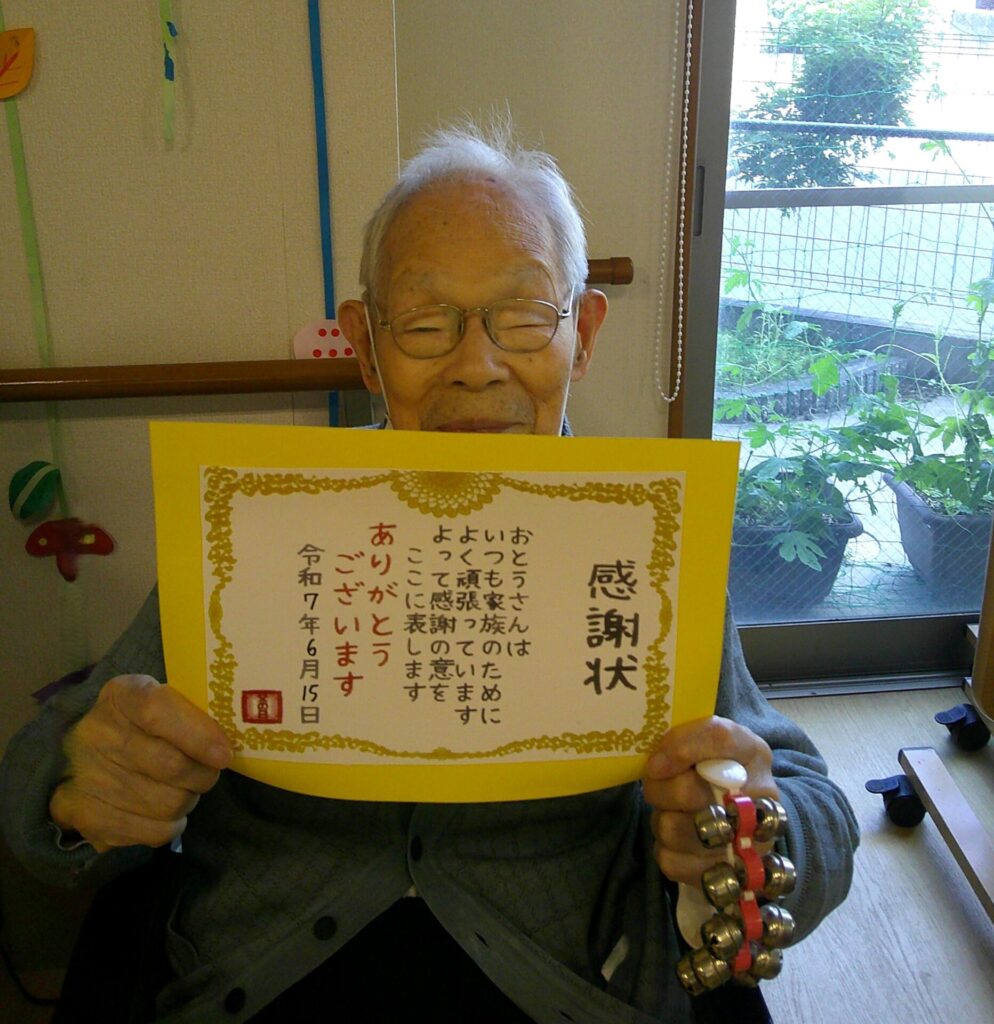 感謝状
おとうさんは
いつも家族のために
よく頑張っています
よって感謝の意を
ここに表します
ありがとう
ございます
令和7年6月15日